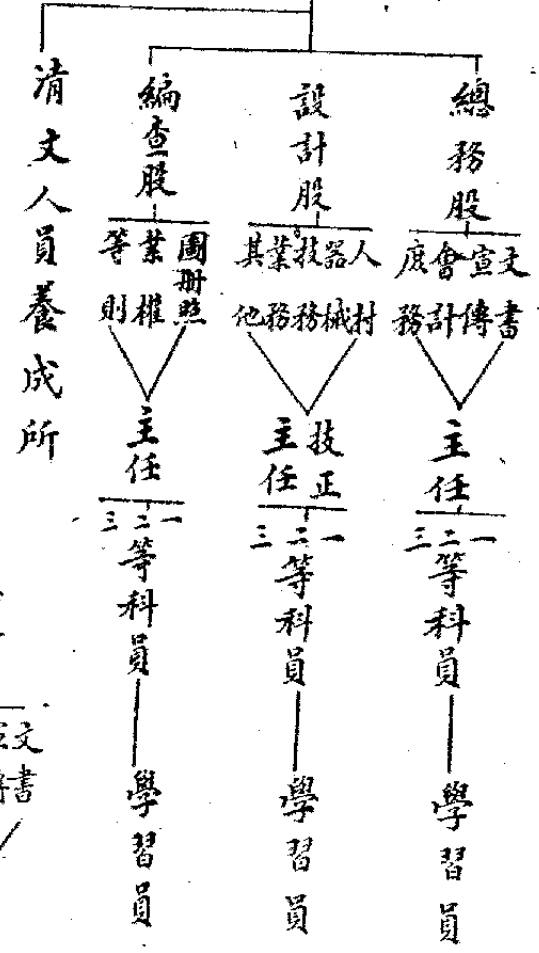 總務股
文書
宣傳
會計
庶務
主任
一二三等科員
學習員
設計股
人材
器械
技務
業務
其他
技正
主任
一二三等科員
學習員
編查股
圖冊照
業權
等則
主任
一二三等科員
學習員
清丈人員養成所
文書